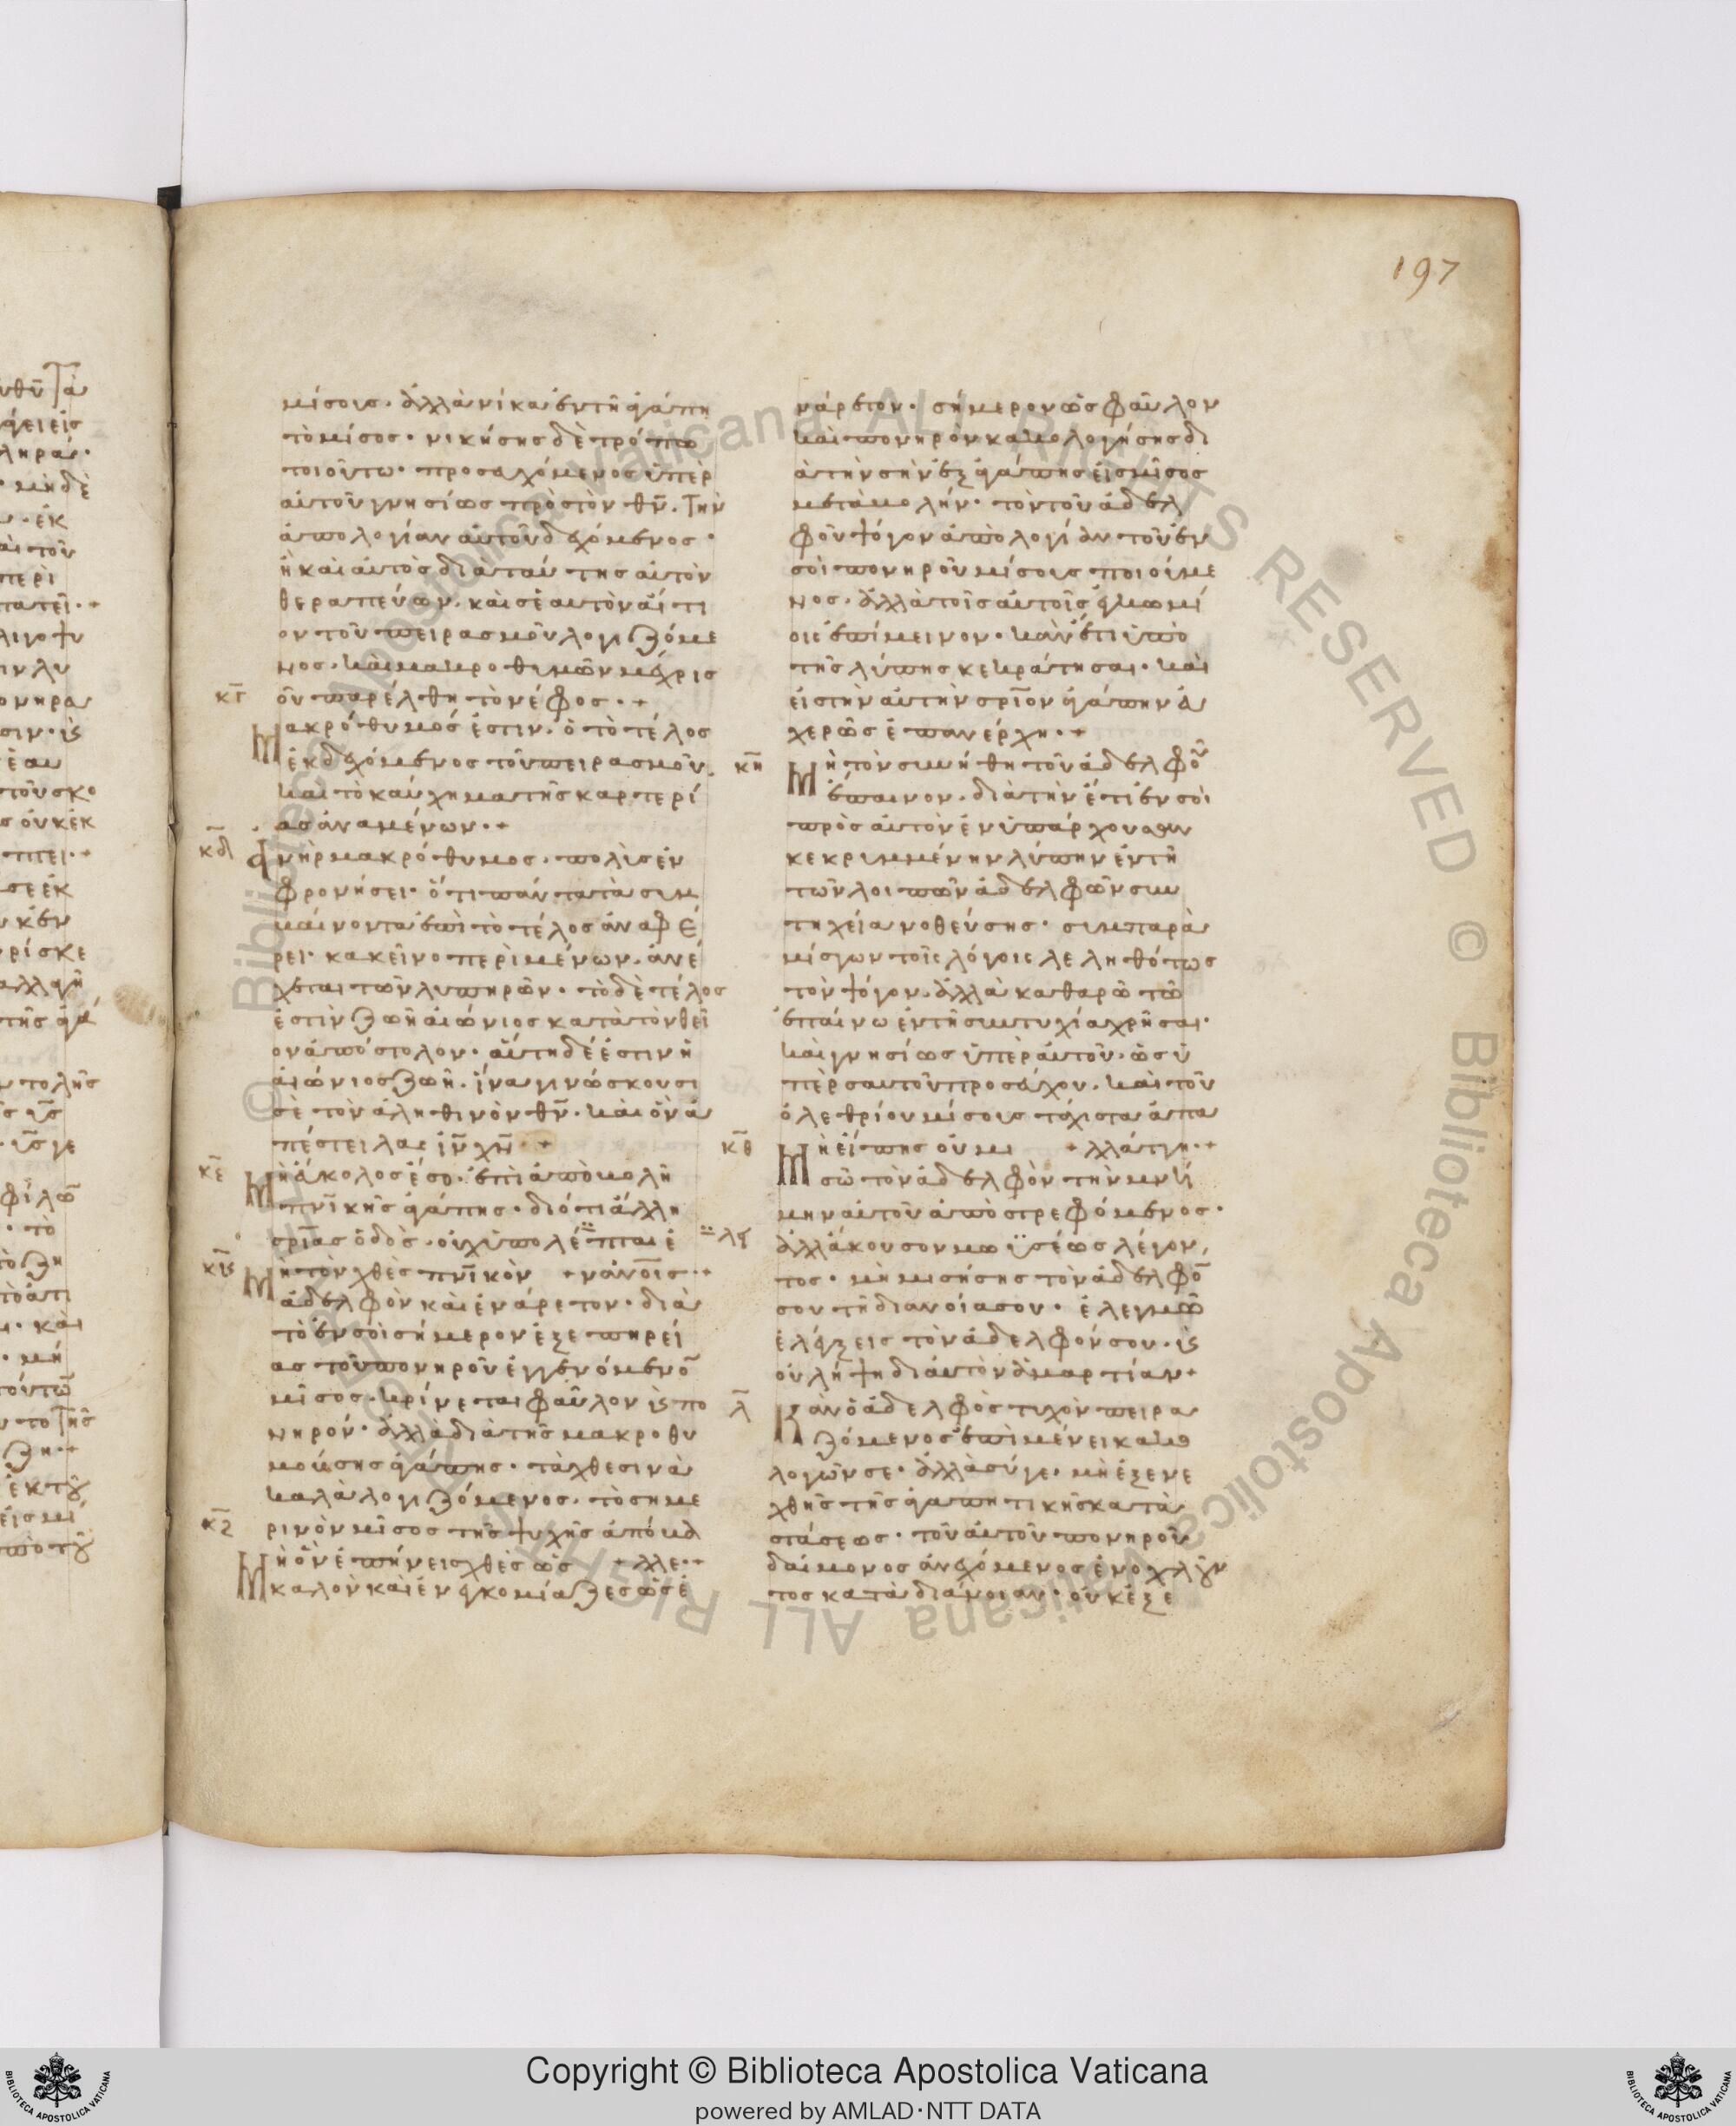 197
μίσους. ἀλλὰ νίκα ἐν τῆ ἀγάπη
τὸ μίσος. νικήσης δὲ τρόπω
τοιούτω. προσευχόμενος ὑπὲρ
αὐτοῦ γνησίως πρὸς τὸν θν̄. τὴν
ἀπολογίαν αὐτοῦ δεχόμενος.
ἢ καὶ αὐτὸς διὰ ταύτης αὐτὸν
θεραπεύων. καὶ σὲ αυτὸν αἴτι
ον τοῦ πειρασμοῦ λογιζόμε
νος. καὶ μακροθυμῶν μέχρις
κγ̄ οὗ παρέλθη τὸ νέφος.+
Μακρόθυμός ἐστιν. ὁ τὸ τέλος
ἐκδεχόμενος τοῦ πειρασμοῦ.
καὶ τὸ καύχημα τῆς καρτερί
ας ἀναμένων.+
κδ̄ Ἀνὴρ μακρόθυμος. πολὺς ἐν
φρονήσει. ὅτι πάντα τὰ συμ
βαίνοντα ἐπὶ τὸ τέλος ἀναφέ
ρει. κακεῖνο περιμένων. ἀνέ
χεται τῶν λυπηρῶν. τὸ δὲ τέλος
ἐστὶν ζωὴ αἰώνιος κατὰ τὸν θεῖ
ον ἀπόστολον. αὕτη δέ ἐστιν ἡ
αἰώνιος ζωὴ. ἵνα γινώσκουσι
σὲ τὸν ἀληθινὸν θν̄. καὶ ὃν ἀ
πέστειλας ιν̄ χν̄.+
κε̄ Μὴ εὔκολος ἔσο. ἐπὶ ἀποβολῆ
πνικῆς ἀγάπης. διότι ἄλλη
σρίας ὁδὸς. οὐχ ὑπολέλειπται
κϛ̄ Μὴ τὸν χθὲς πνικὸν +ν ἀνοις.+
ἀδελφὸν καὶ ἐνάρετον. διὰ
τὸ ἐν σοὶ σήμερον ἐξ ἐπηρεί
ας τοῦ πονηροῦ ἐγγενόμενο
μῖσος. κρίνεται φαῦλον κ πο
νηρόν. ἀλλὰ διὰ τῆς μακροθυ
μούσης ἀγάπης. τὰ χθεσινὰ
καλὰ λογιζόμενος. τὸ σημε
κζ̄ ρινὸν μῖσος τῆς ψυχῆς ἀπόβα
Μὴ ὃν ἐπήνεις χθὲς ὡς +λλε.+
καλὸν καὶ ἐνεκομίαζες ὡς ἐ
νάρετον. σήμερον ὡς φαῦλον
καὶ πονηρὸν κακολογήσης δι
ὰ τὴν σὴν ἐξ ἀγάπης εἰς μῖσος
μεταβολήν. τὸν τοῦ ἀδελ
φοῦ ψόγον ἀπολογίαν τοῦ ἐν
σοὶ πονηροῦ μίσους ποιούμε
νος. ἀλλὰ τοῖς αὐτοῖς ἐγκωμί
οις ἐπίμεινον. κἂν ἔτι ὑπὸ
τῆς λύπης κεκράτησαι. καὶ
εἰς τὴν αὐτὴν σρίον ἀγάπην εὐ
χερῶς ἐπανέρχη.+
κη̄ Μὴ τὸν συνήθη τοῦ ἀδελφοῦ
ἔπαινον. διὰ τὴν ἔτι ἐν σοὶ
πρὸς αὐτὸν ἐνυπάρχουσαν
κεκρυμμένην λύπην ἐν τῆ
τῶν λοιπῶν ἀδελφῶν συν
τηχεία νοθεύσης. συμπαρα
μίσγων τοῖς λόγοις λεληθότως
τὸν ψόγον. ἀλλὰ καθαρῶ τῶ
ἐπαίνω ἐν τῆ συντυχία χρῆσαι.
καὶ γνησίως ὑπὲρ αὐτοῦ. ὡς ὑ
πὲρ σαυτοῦ προσεύχου. καὶ τοῦ
ὀλεθρίου μίσους τάχιστα ἀπα
κθ̄ Μὴ εἴπης οὐ μι +λλάττη.+
σῶ τὸν ἀδελφὸν τὴν μνή
μην αὐτοῦ ἀποστρεφόμενος.
λγ ἀλλ' ἄκουσον μωϋσέως λέγον
τος. μὴ μισήσης τὸν ἀδελφό
σου τῆ διανοία σου. ἐλεγμῶ
ἐλέγξεις τὸν ἀδελφόν σου. κ
οὐ λήψη δι αὐτὸν ἁμαρτίαν+
λ̄ Κἂν ὁ ἀδελφὸς τυχὸν πειρα
ζόμενος ἐπιμένει κακο
λογῶν σε. ἀλλὰ σύ γε. μὴ ἐξενε
χθῆς τῆς ἀγαπητικῆς κατα
στάσεως. τοῦ αὐτοῦ πονηροῦ
δαίμονος ἀνεχόμενος ἐνοχλοῦν
τος κατὰ διάνοιαν. οὐκ ἐξε